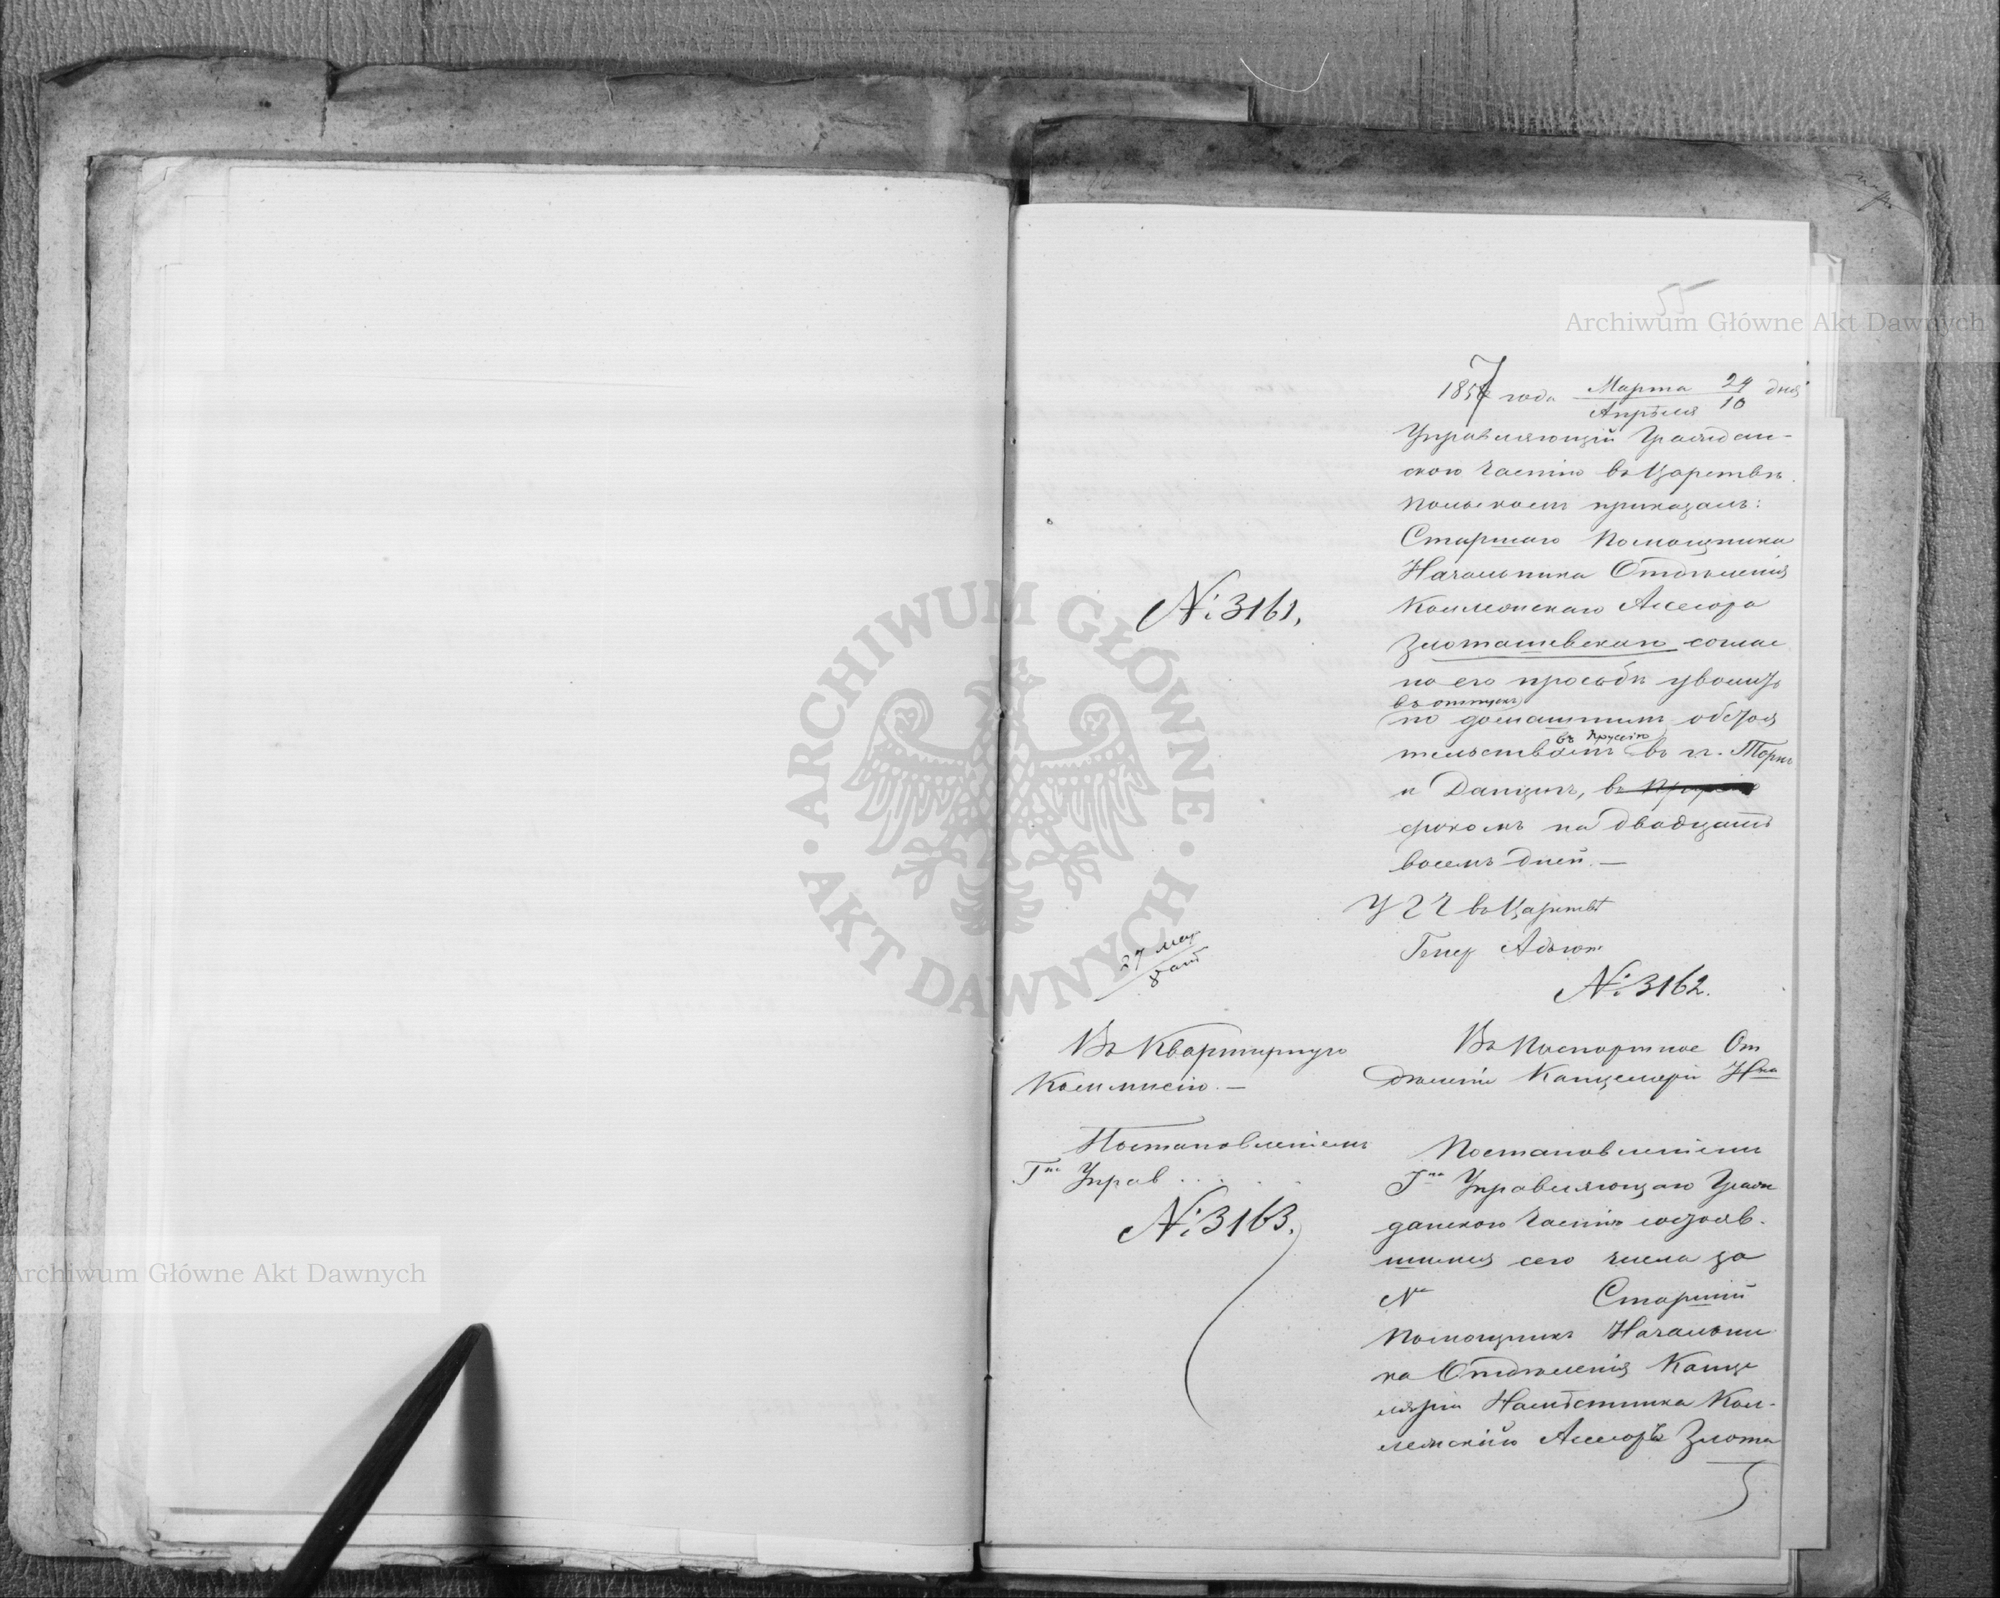 55
1857 года Марта 29 дня
Апрѣля 10
Управляющій Граждан-
скою Частію въ Царствѣ
Польскомъ приказалъ:
Старшаго Помощника
Начальника Отдѣленія
Коллежскаго Асесора
Злоташевскаго соглас
но его просьбѣ уволить
въ отпускъ
по домашнимъ обстоя
въ Пруссію
тельствамъ въ г.г. Торнъ
и Данцигъ, въ Пруссію
срокомъ на двадцать
восемь дней. —
№ 3161.
У Г Ч въ Царствѣ
Генер Адъют
27 мар
8 апр
№ 3162.
Въ Квартирную
Коммисію. —
Постановленіемъ
Гна Управ . . . .
№ 3163.
Въ Паспортное От
дѣленіе Канцеляріи Нка
Постановленіемъ
Гна Управляющаго Граж
данскою Частію состояв-
шимся сего числа за
№ Старшій
Помощникъ Начальни
ка Отдѣленія Канце
ляріи Намѣстника Кол-
лежскій Асесоръ Злота
Archiwum Główne Akt Dawnych
Archiwum Główne Akt Dawnych
ARCHIWUM GŁÓWNE AKT DAWNYCH